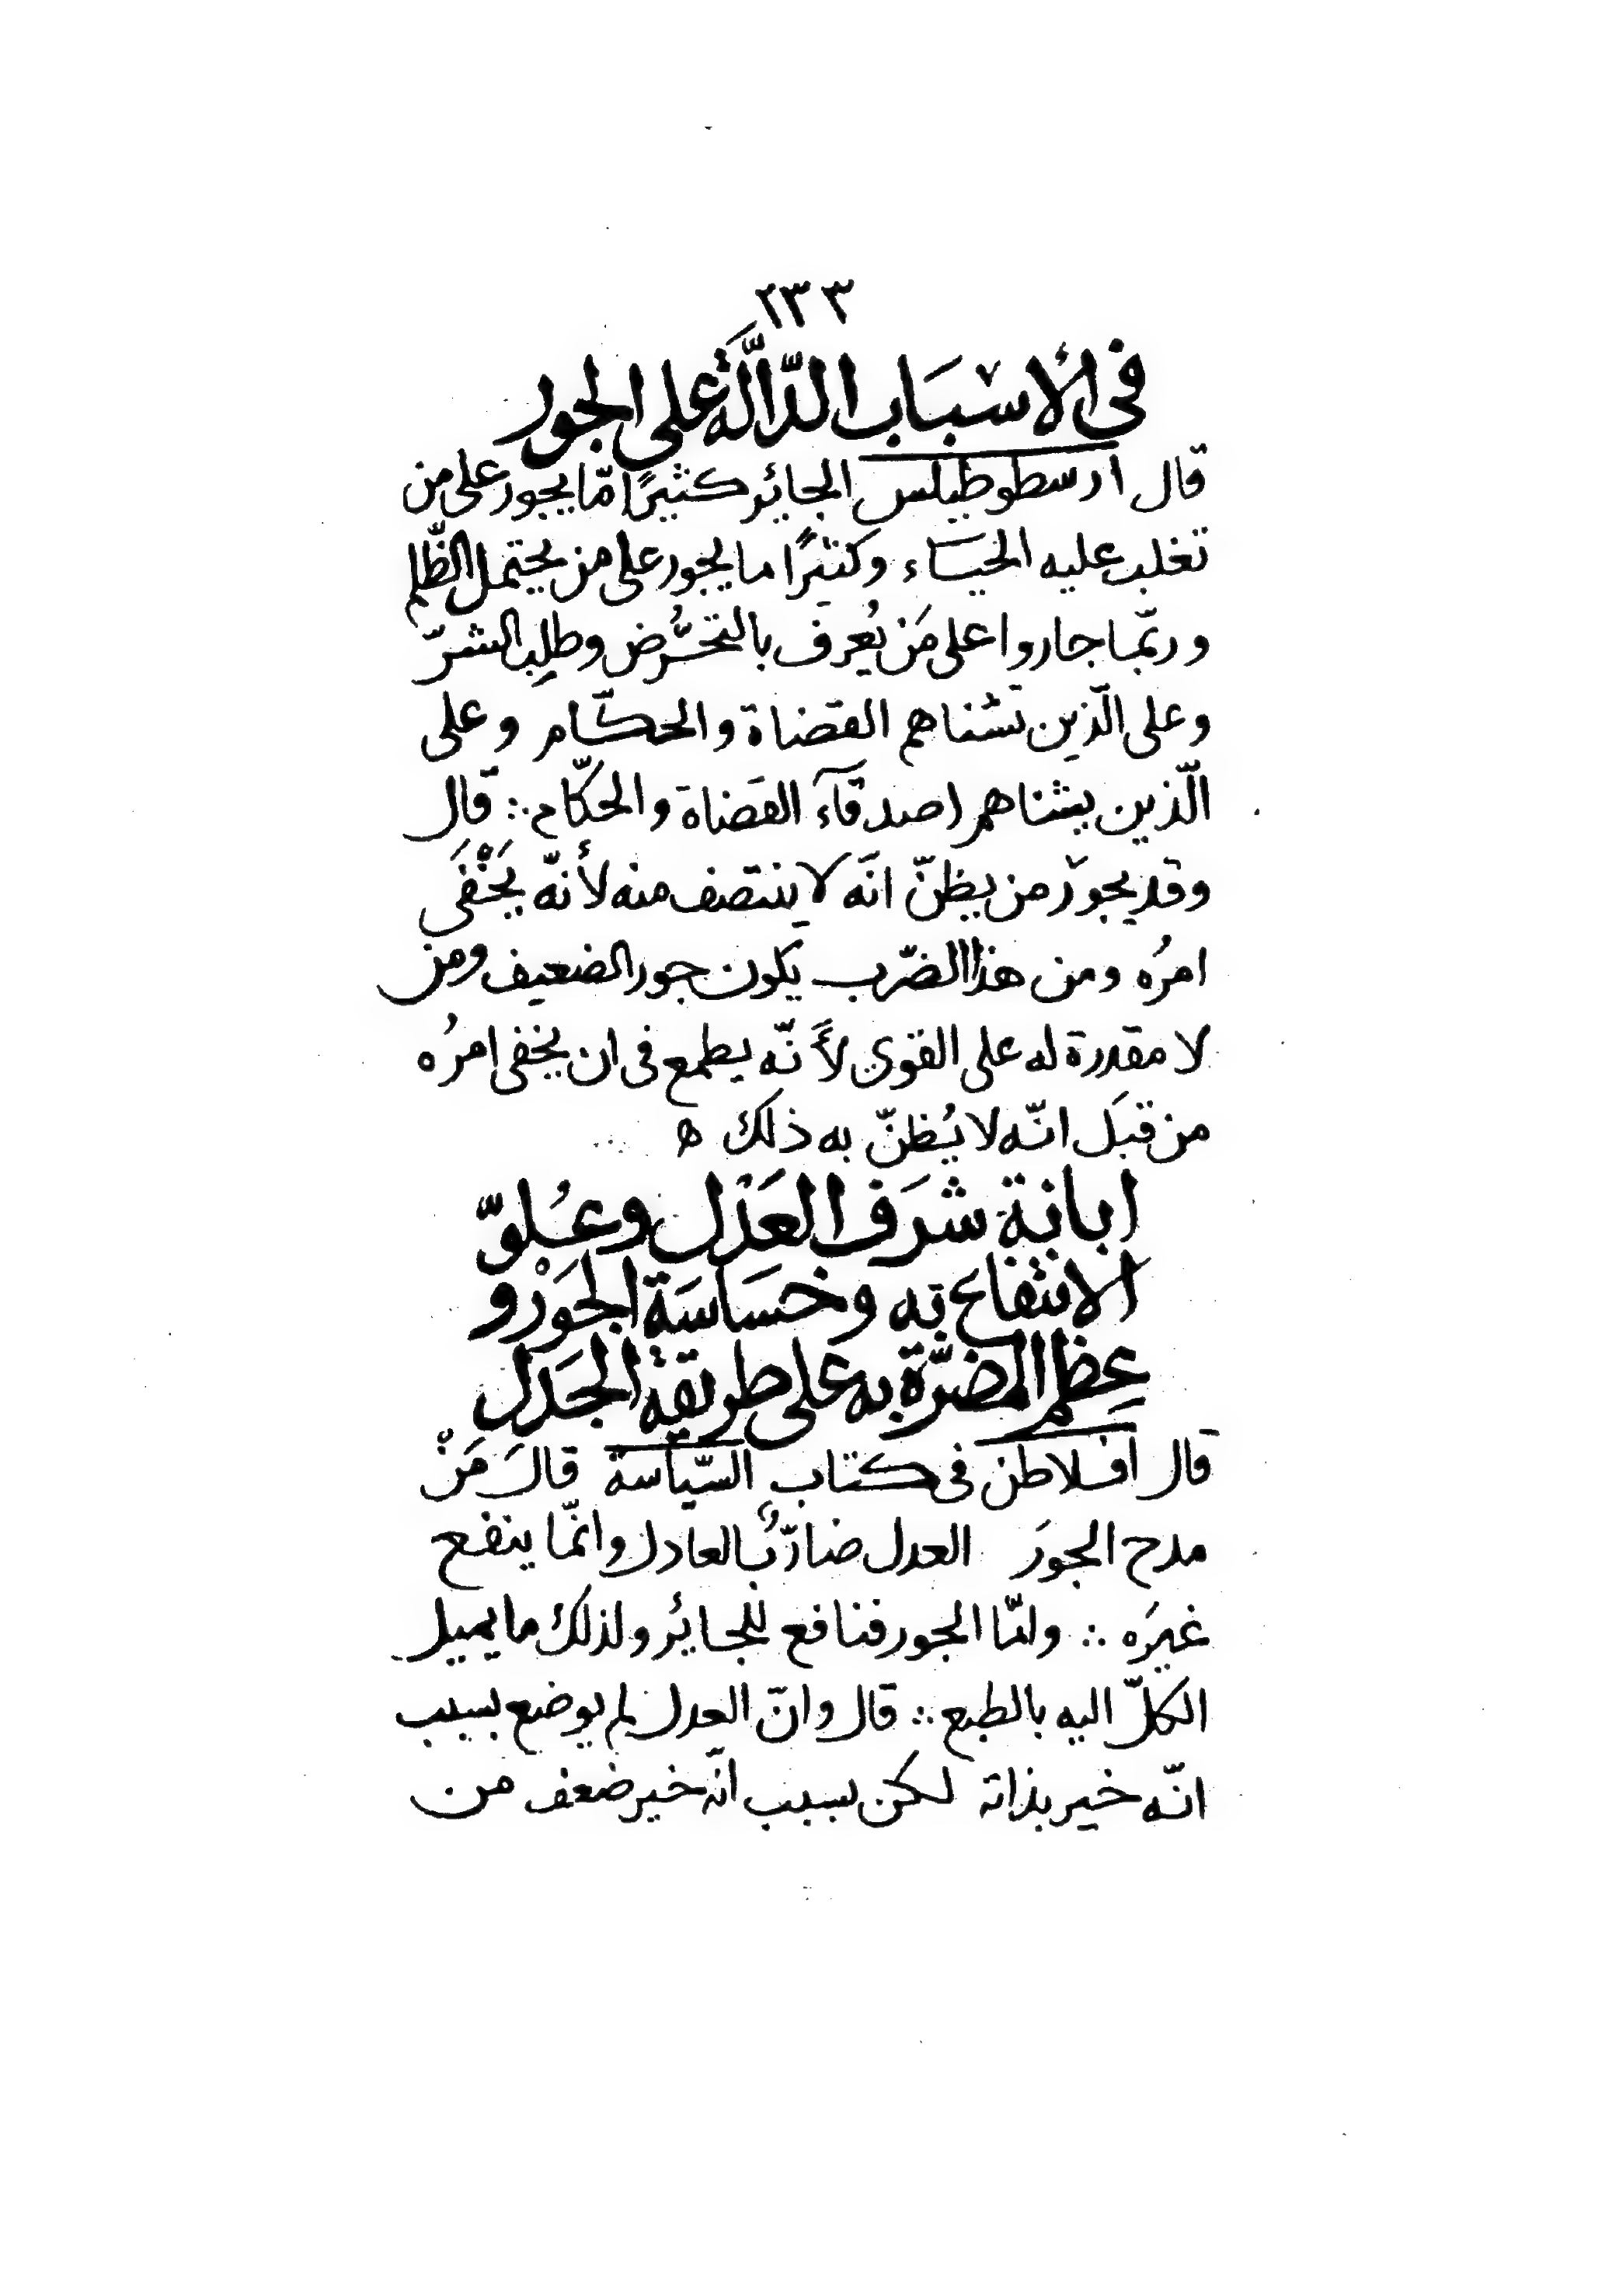 ٢٣٣
فى الأسْبَاب الدّالَّة على الجور
قال ارسطوطيلس الجائر كثيرًا مّا يجور على من
تغلب عليه الحيَاء وكثيرًا ما يجور على من يحتمل الظّلم
وربّما جاروا على مَن يُعرف بالتحرُّض وطلِب الشرّ
وعلى الّذين تشناهم القضاة والحكّام وعلى
الّذين يشناهم اصدقآء القضاة والحكّام ∴ قال
وقد يجور من يظنّ انّه لا ينتصف منه لأنّه يَخْفَى
امرُه ومن هذا الضّرب يكون جور الضعيف ومن
لا مقدرة له على القوي لأنّه يطمع فى ان يخفى امرُه
من قبَل انّه لا يُظنّ به ذلك ه
ابانة شرَف العَدْل وعُلوّ
الانتفاع به وخسَاسَة الجَوْر و
عِظم المضرّة به على طريقة الجَدَل
قال افلاطن فى كتاب السّياسة قالَ مَنْ
مدح الجورَ العدل ضارٌّ بالعادل وانّما ينفع
غيرَه ∴ وامّا الجور فنافع للجائر ولذلك ما يميل
الكلّ اليه بالطبع ∴ قال وانّ العدل لم يوضع بسبب
انّه خير بذاته لكن بسبب انّه خير ضعف من